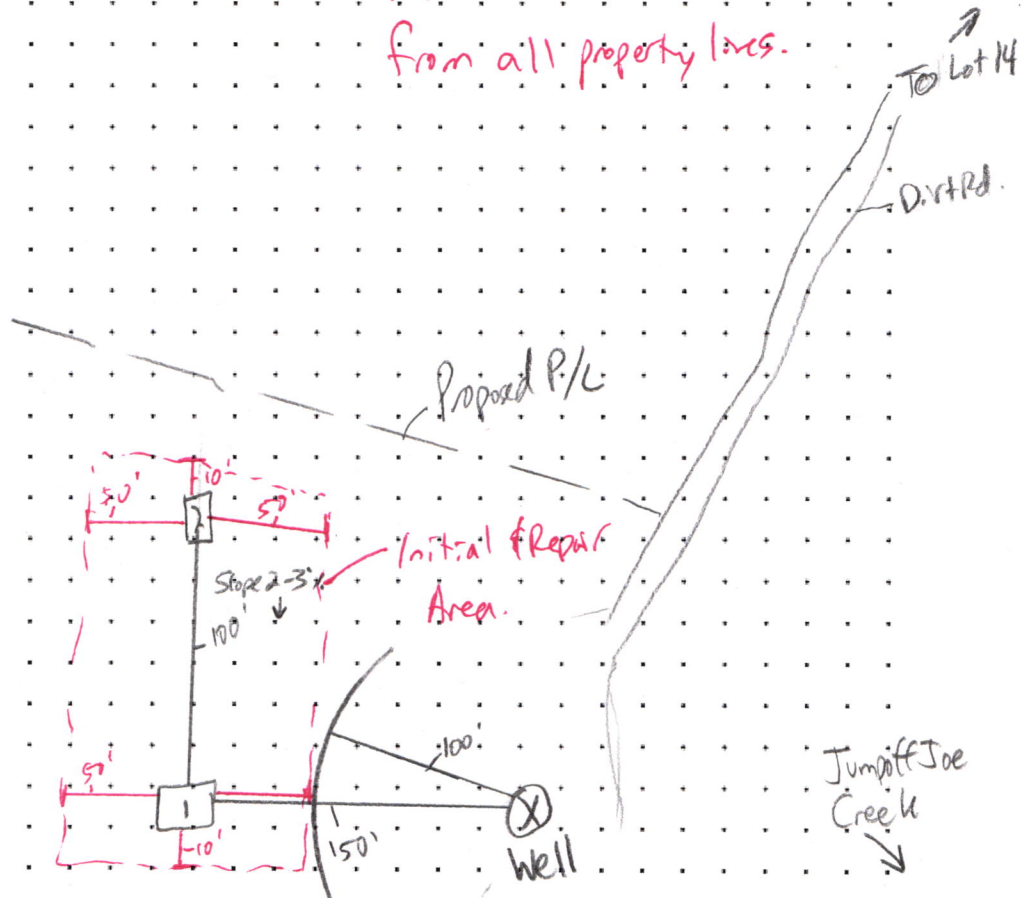 from all property lines.
To Lot 14
Dirt Rd.
Proposed P/L
10'
50'
2
50'
Initial & Repair
Area.
Slope 2-3%
100'
100'
50'
1
150'
10'
X
Well
Jumpoff Joe
Creek